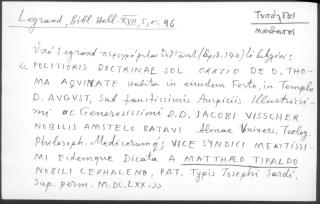 Legrand, Bibl. Hell. XVII, 5, σ. 96
Τυπάλδος
Ματθαῖος
Ὑπὸ Legrand περιγράφεται
« POLITIORIS DOCTRINAE SOL ORATIO DE D. THO-
MA AQUINATE habita in eiusdem Festo, in Templo
D. AVGVST, sub faustissimis Auspiciis Illustrissi-
mi ac Generosissimi D.D. JACOBI VISSCHER
NOBILIS AMSTELO BATAVI Almae Univers, Teolog.
Philosoph. Medicorumq; VICE SYNDICI MERITISSI-
MI Eidemque Dicata A MATTHÆO TIPALDO
NOBILI CEPHALENO, PAT. Typis Iosephi Sardi,
Sup. perm. M.DC.LXX. »